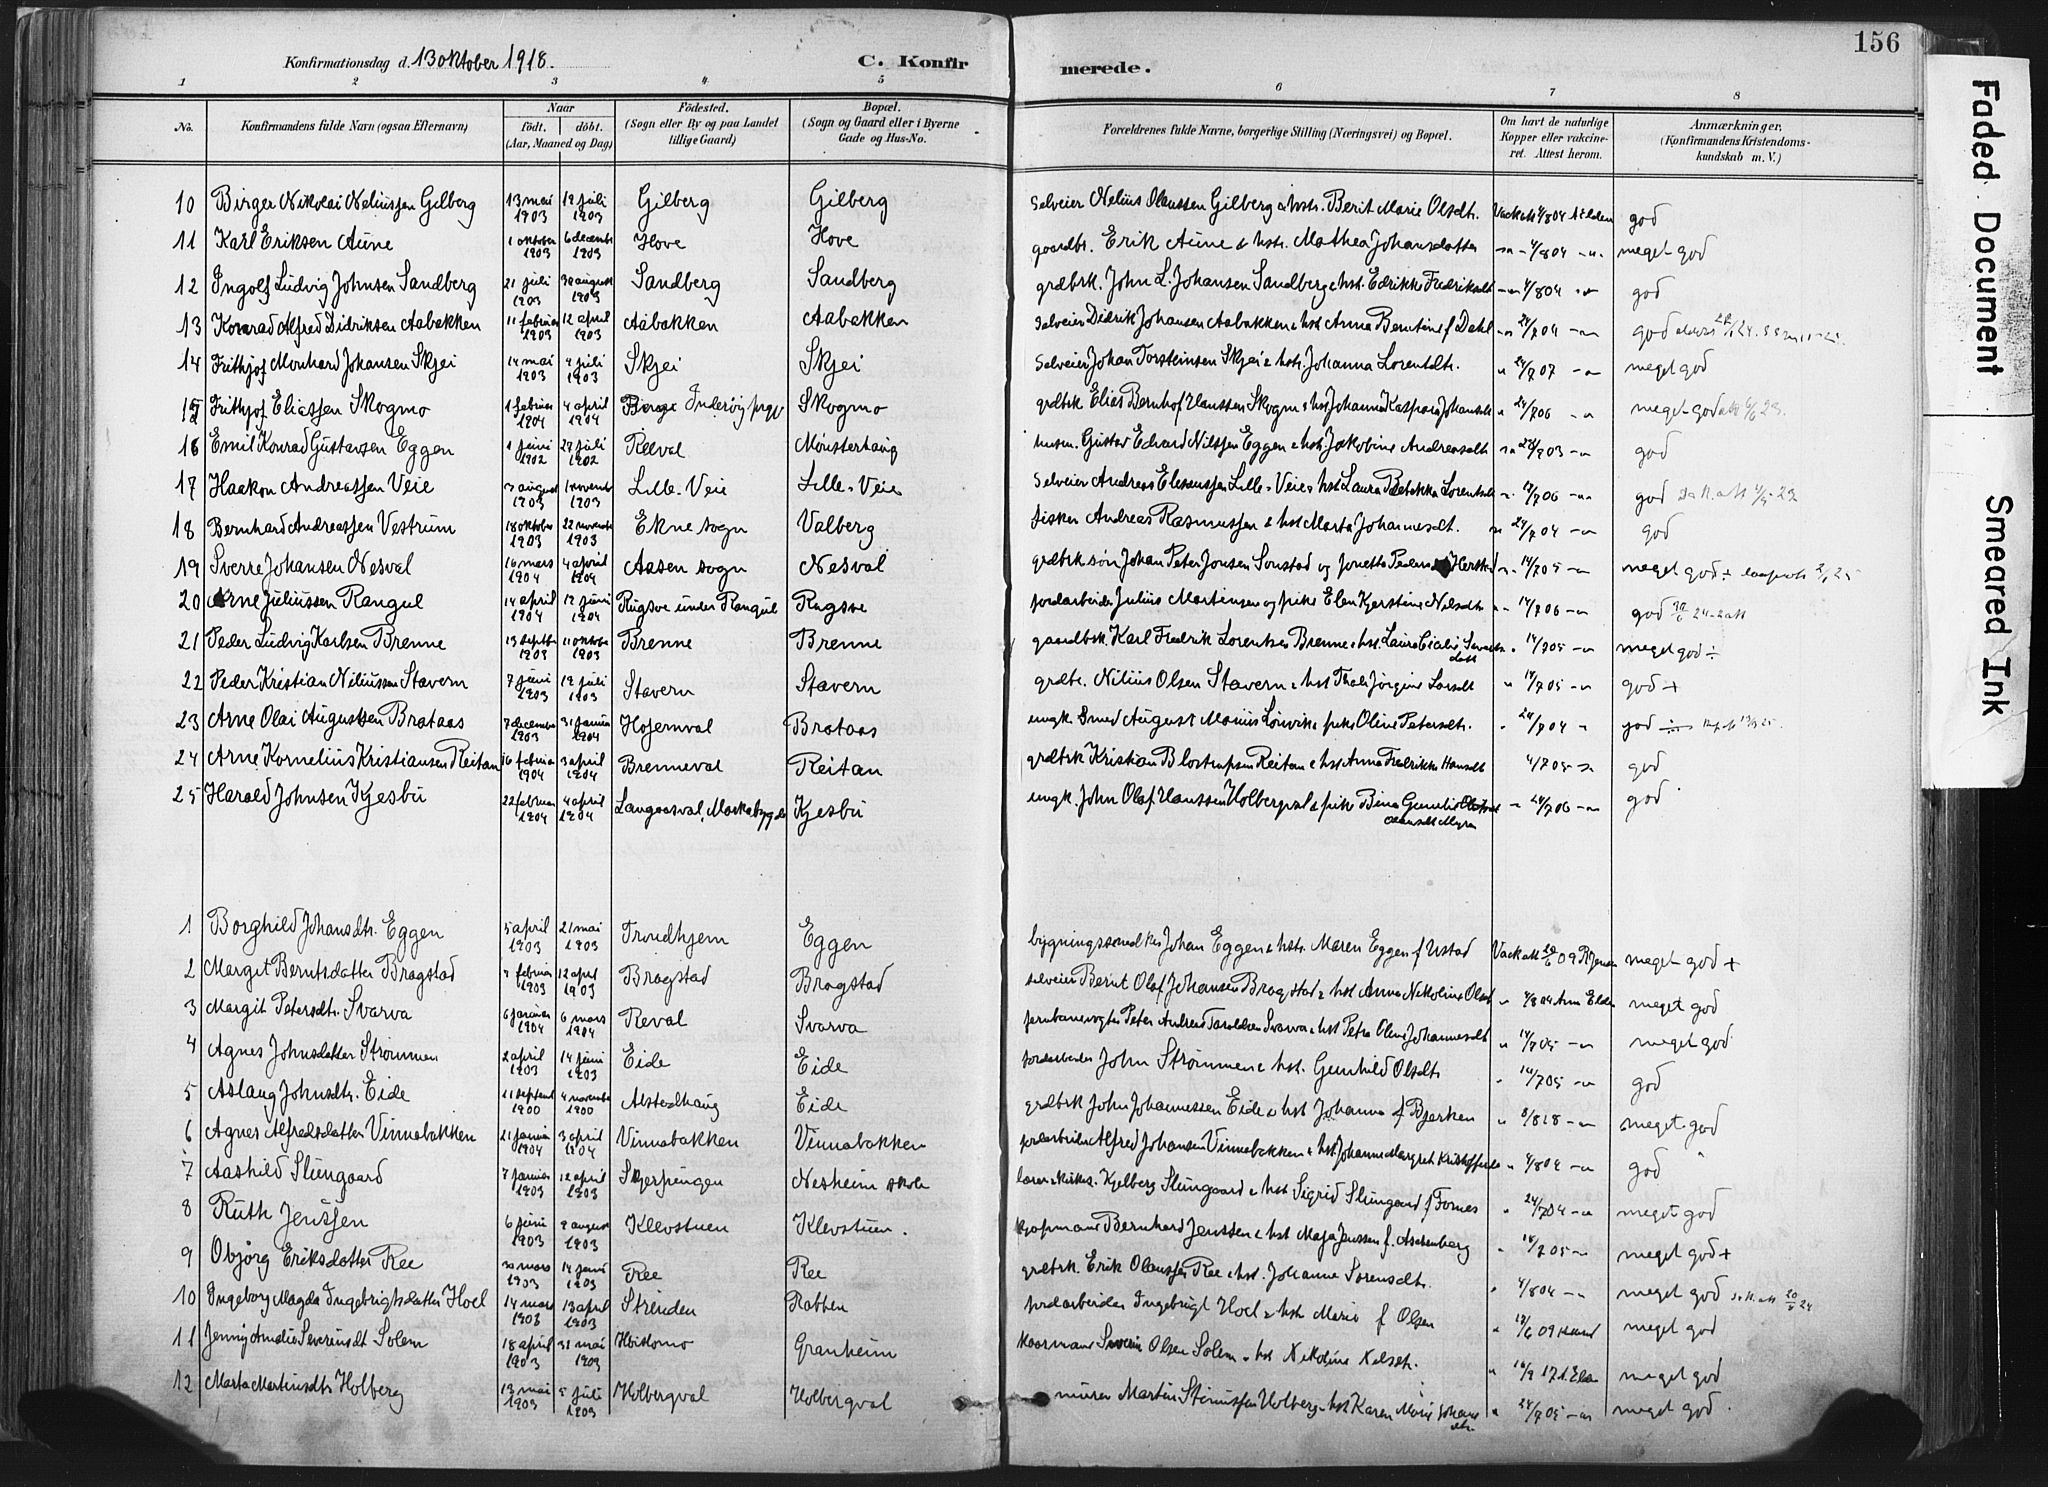 156
Konfirmationsdag d. 13 oktober 1918. C. Konfirmerede.
1 2 3 4 5 6 7 8
No. Konfirmandens fulde Navn (ogsaa Efternavn) Naar födt. döbt. (Aar, Maaned og Dag) Födested. (Sogn eller By og paa Landet tillige Gaard) Bopæl. (Sogn og Gaard eller i Byerne Gade og Hus-No. Forældrenes fulde Navne, borgerlige Stilling (Næringsvei) og Bopæl. Om havt de naturlige Kopper eller vakcineret. Attest herom. Anmærkninger, (Konfirmandens Kristendomskundskab m. V.)
10 Birger Nikolai Neliussen Gilberg 13 mai 1903 19 juli 1903 Gilberg Gilberg Selveier Nelius Olaussen Gilberg & hstr. Berit Marie Olsdtr. god
11 Karl Eriksen Aune 1 oktober 1903 6 decembr 1903 Hove Hove gaardbr. Erik Aune & hstr. Mathea Johansdatter 4/8 04 meget god
12 Ingolf Ludvig Johnsen Sandberg 21 juli 1903 30 august 1903 Sandberg Sandberg grdbrk. John L. Johansen Sandberg & hst. Edrikke Fredriksdt 4/8 04 god
13 Konrad Alfred Didriksen Aabakken 11 februar 1903 12 april 1903 Aabakken Aabakken Selveier Didrik Johansen Aabakken & hst Anna Berntine f Dahl 24/7 04 god
14 Frithjof Monhard Johansen Skjei 14 mai 1903 9 juli 1903 Skjei Skjei Selveier Johan Torsteinsen Skjei & hstr. Johanna Lorentsdtr. 24/7 07 meget god
15 Frithjof Eliassen Skogmo 1 februar 1904 4 april 1904 Inderøy prgj Skogmo grdbrk Elias Bernhof Hanssen Skogmo & hst Johanna Kaspara Johansdt 24/7 06 meget god
16 Emil Konrad Gustavsen Eggen 1 juni 1902 27 juli 1902 Reeval Mønsterhaug husm. Gustav Edvard Nilssen Eggen & hst. Jakobine Andreasdt god
17 Haakon Andreassen Veie august 1903 1 novembr 1903 Lille-Veie Lille-Veie Selveier Andreas Eliseussen Lille-Veie & hst Laura Rebekka Lorentsdt god
18 Bernhard Andreassen Vestrum 18 oktober 1903 22 novembr 1903 Ekne sogn Valberg fisker Andreas Rasmussen & hst Marta Johannesdt. 24/7 04 god
19 Sverre Johansen Nesval 16 mars 1904 4 april 1904 Aasen sogn Nesval grdbrk søn Johan Peter Jonsen Sonstad og Jonetta 14/7 05 meget god
20 Arne Juliussen Rangul 14 april 1904 12 juni 1904 Rugsve under Rangul Rugsve jordarbeider Julius Martinsen og pike Elen Kjerstine Nilsdtr 14/7 06 god
21 Peder Ludvig Karlsen Brenne 13 septbr 1903 11 oktober 1903 Brenne Brenne gaardbrk. Karl Fredrik Lorentsen Brenne & hst. 14/7 05 meget god ÷
22 Peder Kristian Niliussen Stavern 7 juni 1903 19 juli 1903 Stavern Stavern grdbr. Nilius Olsen Stavern & hst Thale Jørgine Larsdt 14/7 05 god +
23 Arne Olai Augustsen Brataas 7 december 1903 31 januar 1904 Hojemval Brataas ungk. Smed August & pike Oline Petersdtr. 24/7 04 god
24 Arne Kornelius Kristiansen Reitan 16 februar 1904 3 april 1904 Brenneval Reitan grdbrk Kristian Reitan & hst Anna Fredrikke Hansdt 4/7 05 god
25 Harald Johnsen Kjesbu 22 februar 1904 4 april 1904 Langaasval, Markabygden Kjesbu ungk. John Olaf Hanssen Holbergval & pike 24/7 06 god
1 Borghild Johansdtr. Eggen 5 april 1903 21 mai 1903 Trondhjem Eggen Johan Eggen & hstr. Maren Eggen f Ustad meget god +
2 Margit Berntsdatter Bragstad februar 1903 12 april 1903 Bragstad Bragstad selveier Bernt Olaf Johansen Bragstad & hst Anna Nikoline Olsdt 4/8 04 meget god
3 Margit Petersdtr. Svarva 6 januar 1904 6 mars 1904 Reval Svarva Peter Andreas Svarva & hst Petra Oline Johannesdt 14/7 05 meget god
4 Agnes Johnsdatter Strømmen 2 april 1903 14 juni 1903 Eide Eide jordarbeider John Strømmen & hst. Gunhild Olsdt. 14/7 05 god
5 Aslaug Johnsdtr. Eide 11 septembr 1900 4 november 1900 Alstedhaug Eide grdbrk John Johannessen Eide & hst Johanna f Bjerken 8/8 18 meget god
6 Agnes Alfredsdatter Vinnabakken 21 januar 1904 3 april 1904 Vinnabakken Vinnabakken jordarbeider Alfred Johansen Vinnabakken & hst Johanna Margrete 4/8 04 god
7 Aashild Slungaard 7 januar 1903 12 april 1903 Skjerpingen Nesheim skole Kjelberg Slungaard & hst Sigrid Slungaard f Fornes 24/7 04 meget god
8 Ruth Jenssen 6 juni 1903 9 august 1903 Klevstuen Klevstuen. kjøpmann Bernhard Jenssen & hst Maja Jenssen f. Aschenberg 14/7 05 meget god +
9 Objørg Eriksdatter Ree 30 mars 1903 14 juni 1903 Ree Ree grdbrk. Erik Olaussen Ree & hst. Johanne Sørensdtr. 4/8 04 meget god
10 Ingeborg Magda Ingebrigtsdatter Hoel 14 mars 1903 13 april 1903 Strinden Rabben jordarbeider Ingebrigt Hoel & hstr Marie f Olsen meget god
11 Jenny Amalie Severinsdt Solem 18 april 1903 31 mai 1903 Granheim Severin Olsen Solem & hst Nikoline Nilsdt. meget god
12 Marta Martinsdtr Holberg 13 mai 1903 5 juli 1903 Holbergval Holbergval murer Martin Holberg & hst Karen Marie Johansdtr. 24/7 05 meget god.
Faded Document
Smeared Ink